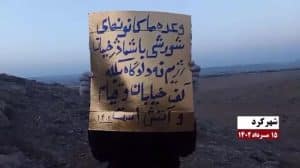 وعده ما کانونهای
شورشی با شما دژخیمان
رژیم نه دادگاه بلکه
کف خیابان و قیام
و آتش
شهرکرد
۱۵ مرداد ۱۴۰۴